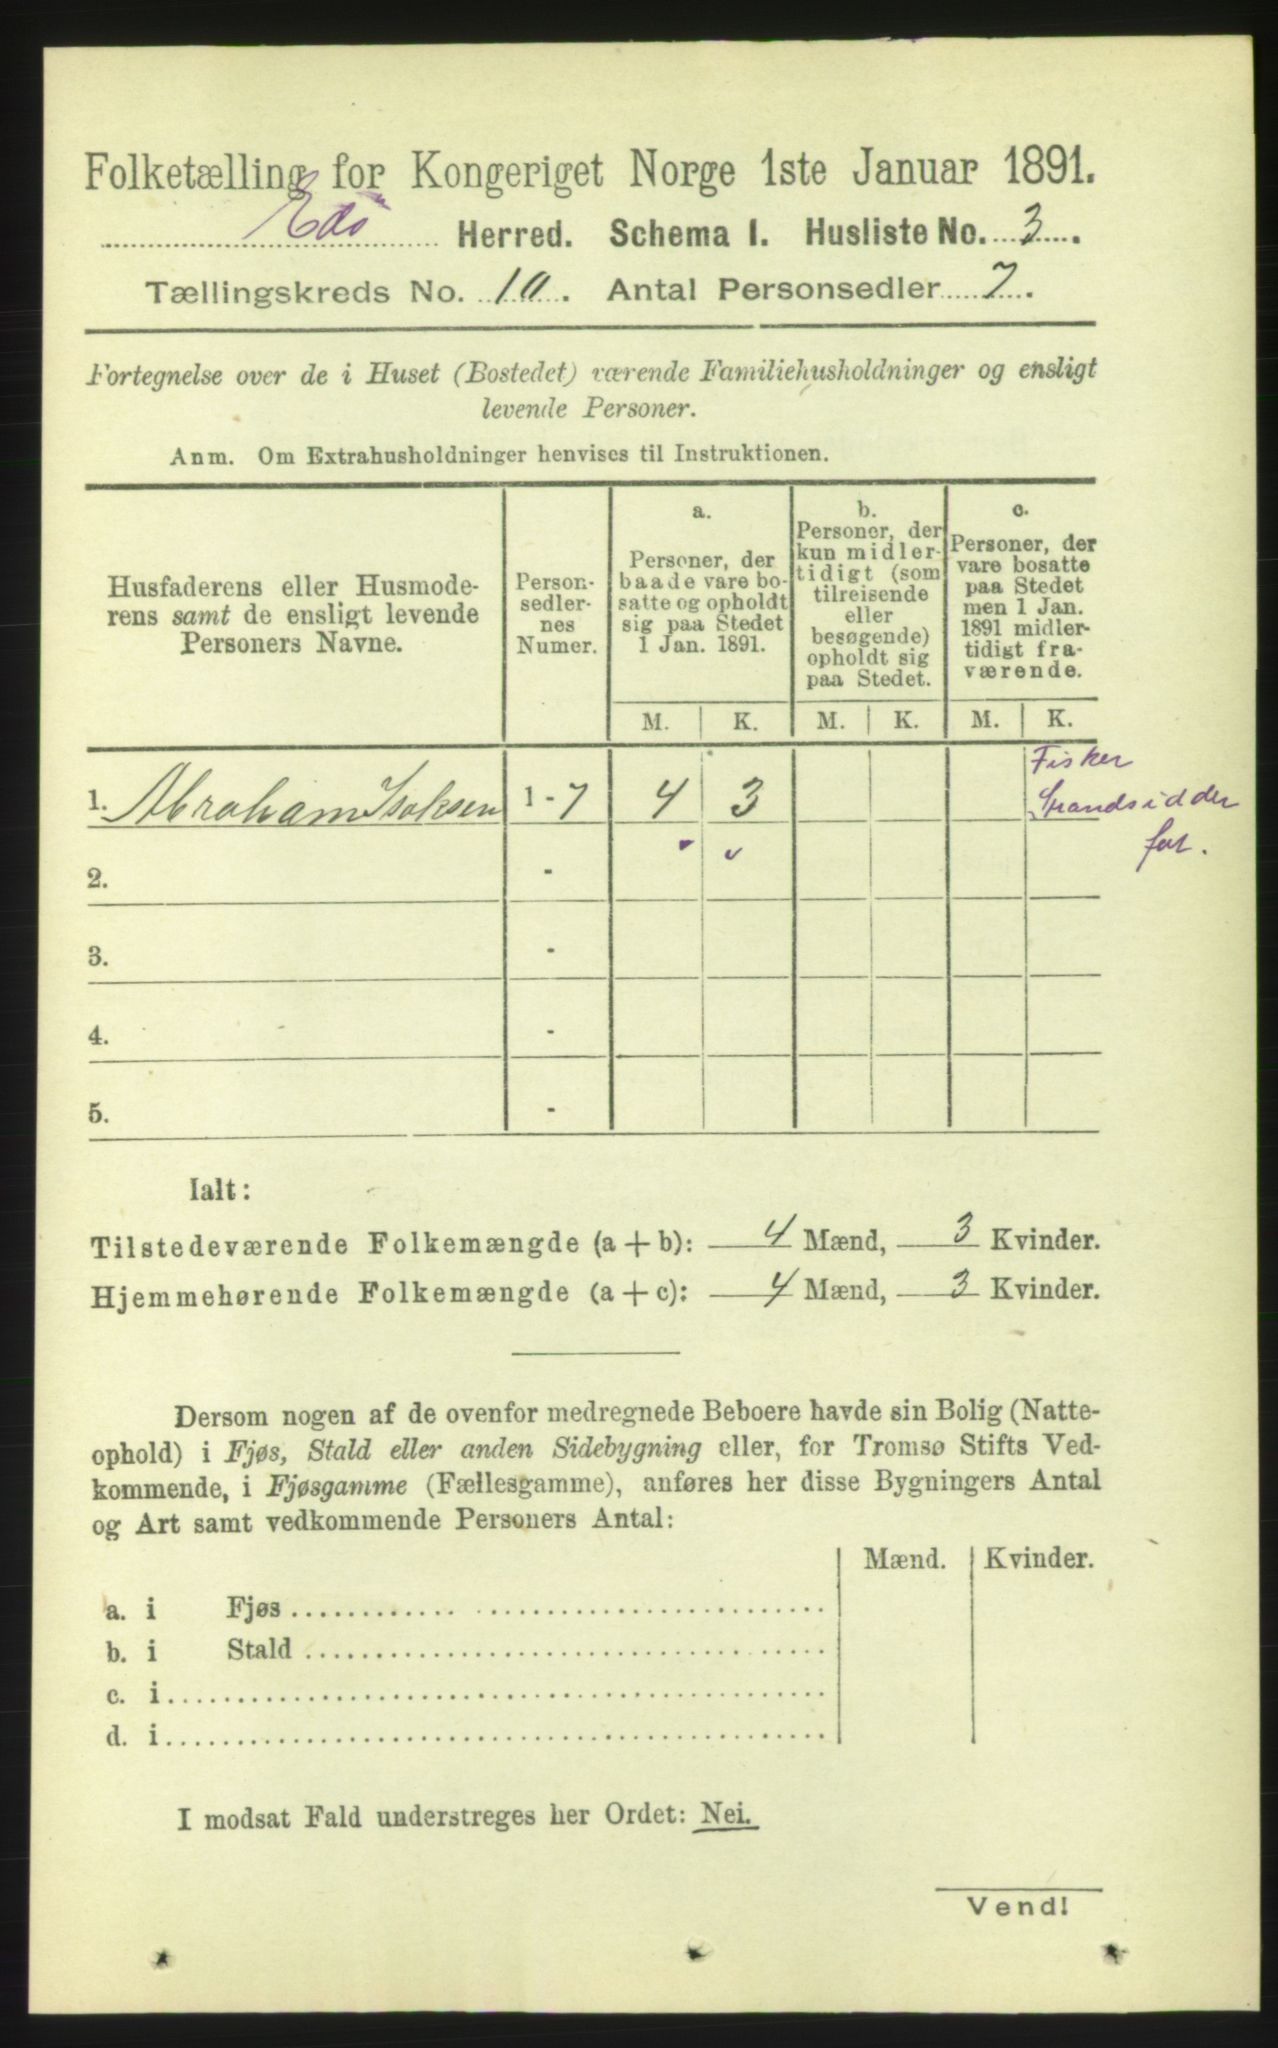 Folketælling for Kongeriget Norge 1ste Januar 1891.
Edø Herred. Schema I. Husliste No. 3.
Tællingskreds No. 10. Antal Personsedler 7.
Fortegnelse over de i Huset (Bostedet) værende Familiehusholdninger og ensligt
levende Personer.
Anm. Om Extrahusholdninger henvises til Instruktionen.
Husfaderens eller Husmode-
rens samt de ensligt levende
Personers Navne.
Person-
sedler-
nes
Numer.
a.
Personer, der
baade vare bo-
satte og opholdt
sig paa Stedet
1 Jan. 1891.
b.
Personer, der
kun midler-
tidigt (som
tilreisende
eller
besøgende)
opholdt sig
paa Stedet.
c.
Personer, der
vare bosatte
paa Stedet
men 1 Jan.
1891 midler-
tidigt fra-
værende.
M. K. M. K. M. K.
1. Abraham Isaksen 1 - 7 4 3
Fisker
Strandsidder
fat.
2. -
3. -
4. -
5. -
Ialt:
Tilstedeværende Folkemængde (a + b): 4 Mænd, 3 Kvinder.
Hjemmehørende Folkemængde (a + c): 4 Mænd, 3 Kvinder.
Dersom nogen af de ovenfor medregnede Beboere havde sin Bolig (Natte-
ophold) i Fjøs, Stald eller anden Sidebygning eller, for Tromsø Stifts Ved-
kommende, i Fjøsgamme (Fællesgamme), anføres her disse Bygningers Antal
og Art samt vedkommende Personers Antal:
Mænd. Kvinder.
a. i Fjøs
b. i Stald
c. i
d. i
I modsat Fald understreges her Ordet: Nei.
Vend!